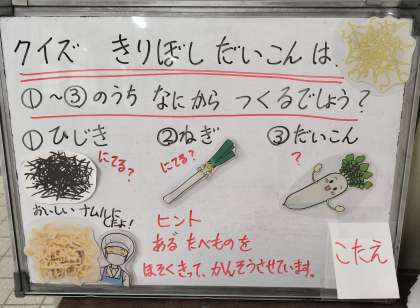 クイズ きりぼし だいこん は、
①～③のうち なにから つくるでしょう？
①ひじき
にてる？
②ねぎ
にてる？
③だいこん
？
おいしい ナムルに
したよ！
ヒント
ある たべものを
ほそくきって、かんそうさせています。
こたえ